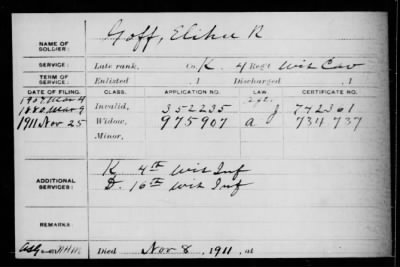 Goff, Elihu R
NAME OF SOLDIER:
SERVICE: Late rank, Co. K, 4 Reg't Wis Cav
TERM OF SERVICE: Enlisted , 1 Discharged , 1
DATE OF FILING. CLASS. APPLICATION NO. LAW. CERTIFICATE NO.
1907 Mar 4
1880 Mar 9 Invalid, 352235 J 742361
1911 Nov 25 Widow, 975907 a 734 737
Minor,
K 4th Wis Inf
ADDITIONAL SERVICES: D. 16th Wis Inf
REMARKS:
Died Nov 8, 1911, at